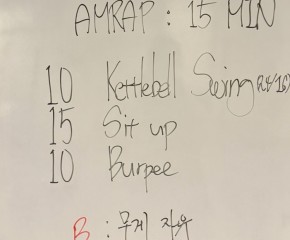 AMRAP : 15 MIN
10 Kettlebell Swing (24/16)
15 Sit up
10 Burpee
B : 무게 자유